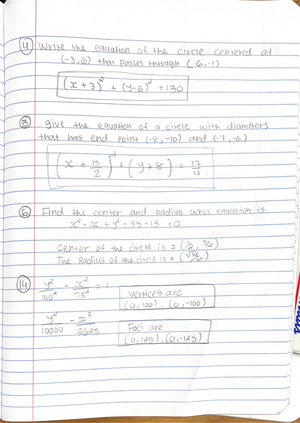 ④ Write the equation of the circle centered at
(-3,6) that passes through (6,-1)
(x + 3)² + (y-6)² = 130
give the equation of a circle with diamters
that has end point (-8,-10) and (-7,-6)
(x + 15/2)² + (y+8)² = 17/4
⑥ Find the center and radius whos equation is
x² - x + y² - 5y - 13 = 0
Center of the circle is = (½, 5/2)
The Radius of the circle is =
⑭ y²/100² - x²/75² = 1
vertices are
(0,100), (0,-100)
y²/10000 - x²/5625
Foci are
(0,125), (0,-125)